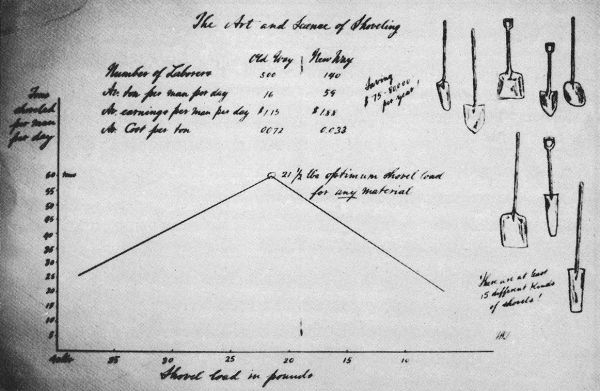 The Art and Science of Shoveling
Old Way New Way
Number of Laborers 500 140
Av. ton per man per day 16 59
Av. earnings per man per day $1.15 $1.88
Av. Cost per ton 0.072 0.033
Saving
$75-80000
per year!
Tons
shoveled
per man
per day
60
55
50
45
40
35
30
25
20
15
10
5
21 1/2 lbs optimum shovel load
for any material
There are at least
15 different kinds
of shovels!
35 30 25 20 15 10
Shovel load in pounds